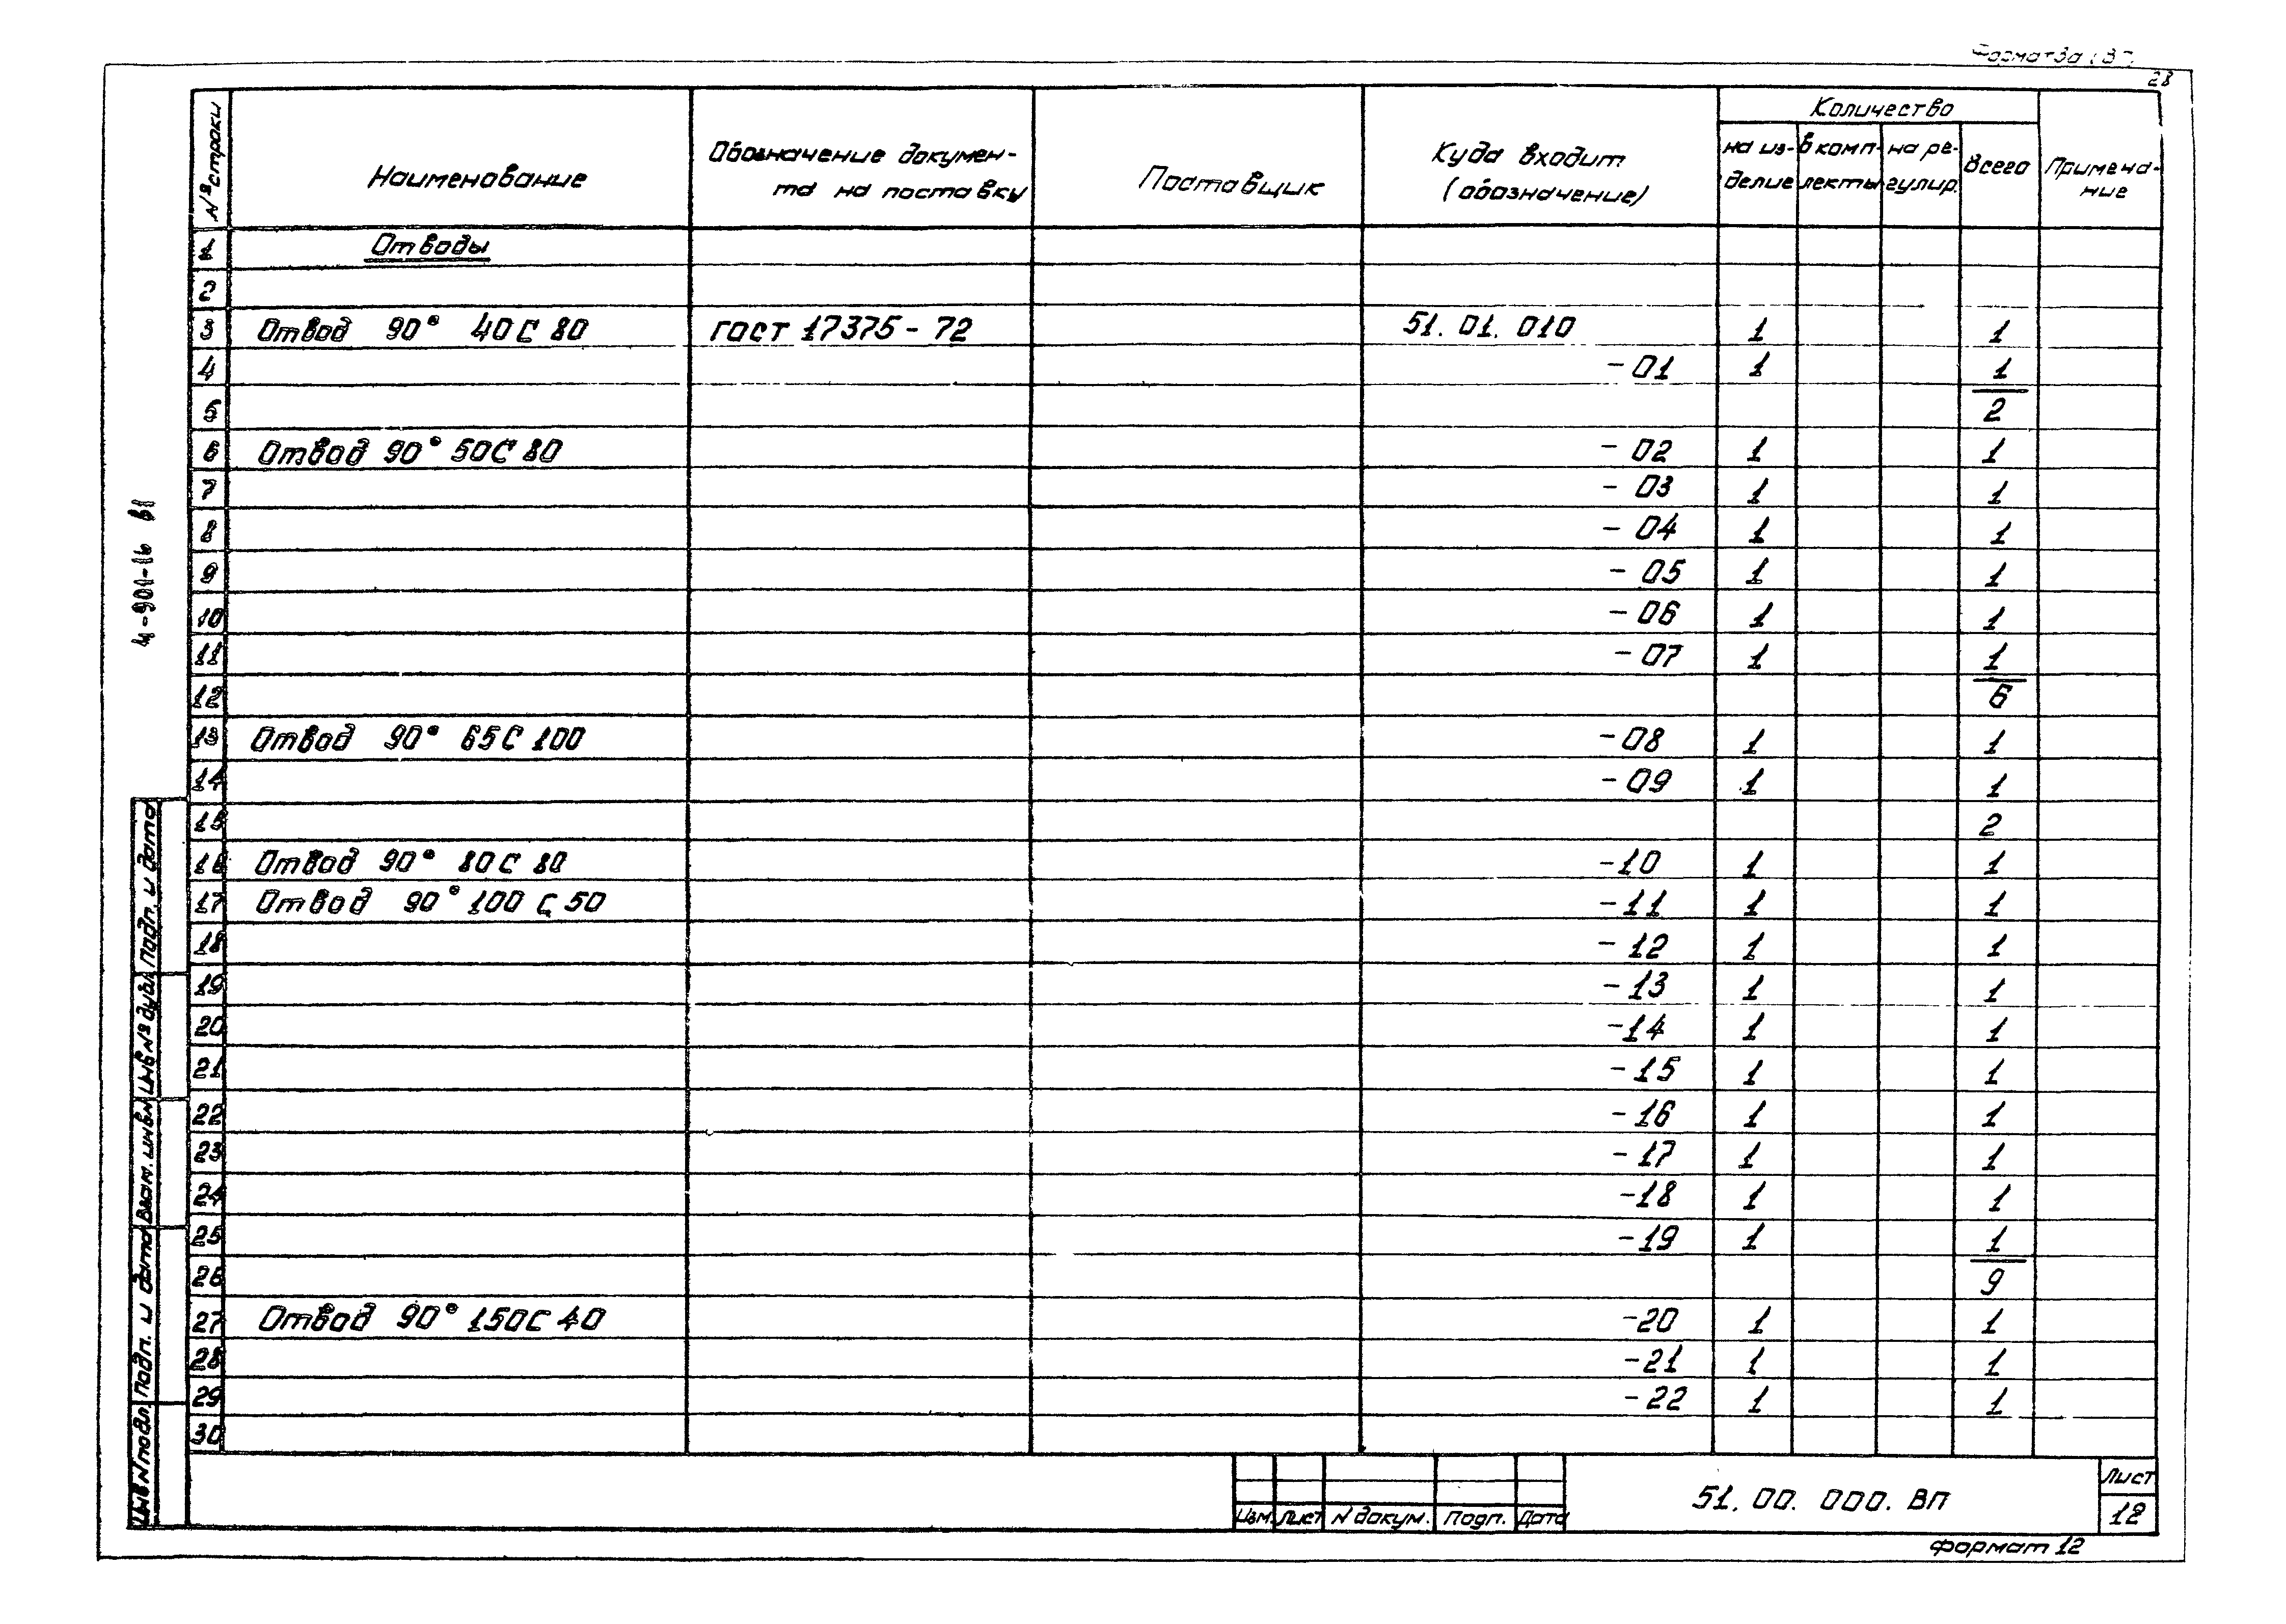 28
№ строки
Наименование
Обозначение докумен-
та на поставку
Поставщик
Куда входит
(обозначение)
Количество
на из-
делие
в комп-
лекты
на ре-
гулир.
Всего
Примеча-
ние
1 Отводы
2
3 Отвод 90° 40С 80 ГОСТ 17375-72 51.01.010 1 1
4 -01 1 1
5 2
6 Отвод 90° 50С 80 -02 1 1
7 -03 1 1
8 -04 1 1
9 -05 1 1
10 -06 1 1
11 -07 1 1
12 6
13 Отвод 90° 65С 100 -08 1 1
14 -09 1 1
15 2
16 Отвод 90° 80С 80 -10 1 1
17 Отвод 90° 100С 50 -11 1 1
18 -12 1 1
19 -13 1 1
20 -14 1 1
21 -15 1 1
22 -16 1 1
23 -17 1 1
24 -18 1 1
25 -19 1 1
26 9
27 Отвод 90° 150С 40 -20 1 1
28 -21 1 1
29 -22 1 1
30
4-901-16 В1
Подп. и дата
Инв № дубл
Взам. инв №
Подп. и дата
Инв № подл.
Изм. Лист № докум. Подп. Дата
51.00.000.ВП
Лист
12
формат 12